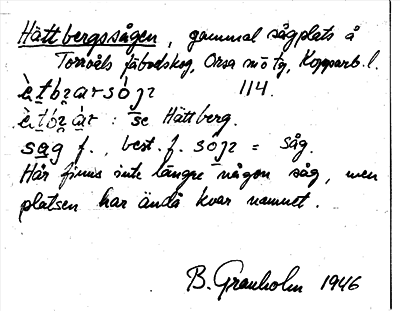 Hättbergssågen, gammal sågplats å
fäbodskog, Orsa sn o tg, Kopparb. l.
114.
: se Hättberg.
f., best. f. = såg.
Här finns inte längre någon såg, men
platsen har ändå kvar namnet.
B. Granholm 1946